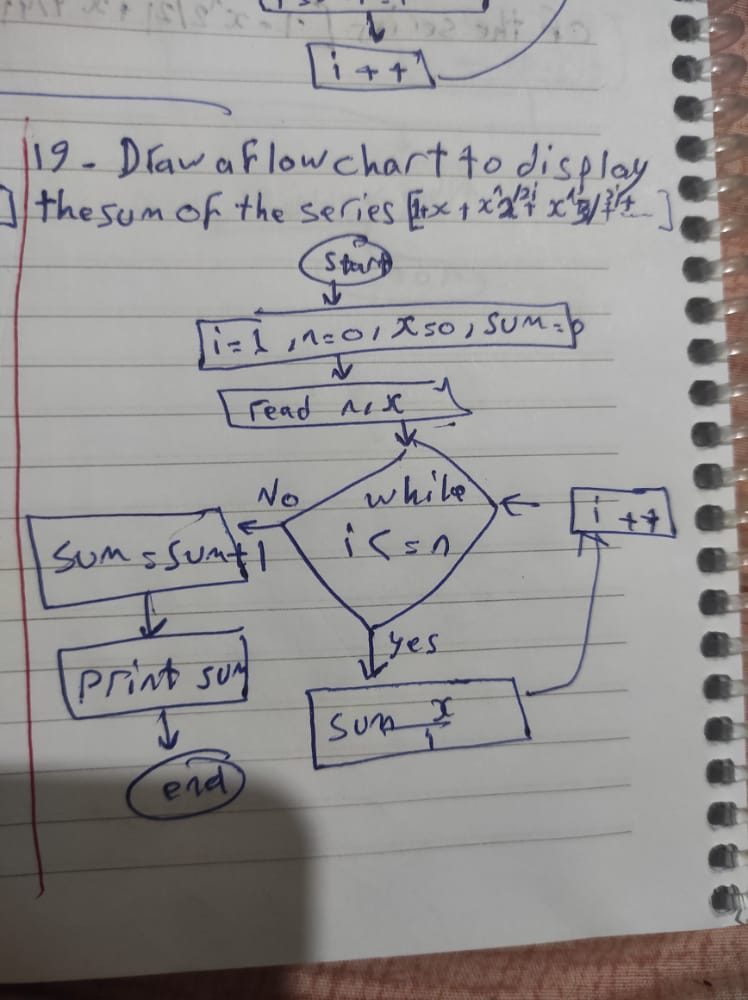 i++
19 - Draw a flowchart to display
the sum of the series [1+x+x^2/2!+x^3/3!+...]
start
i=1, n=0, x=0, sum=0
read n, x
while
i<=n
No
yes
i++
sum=sum+1
print sum
end
sum x